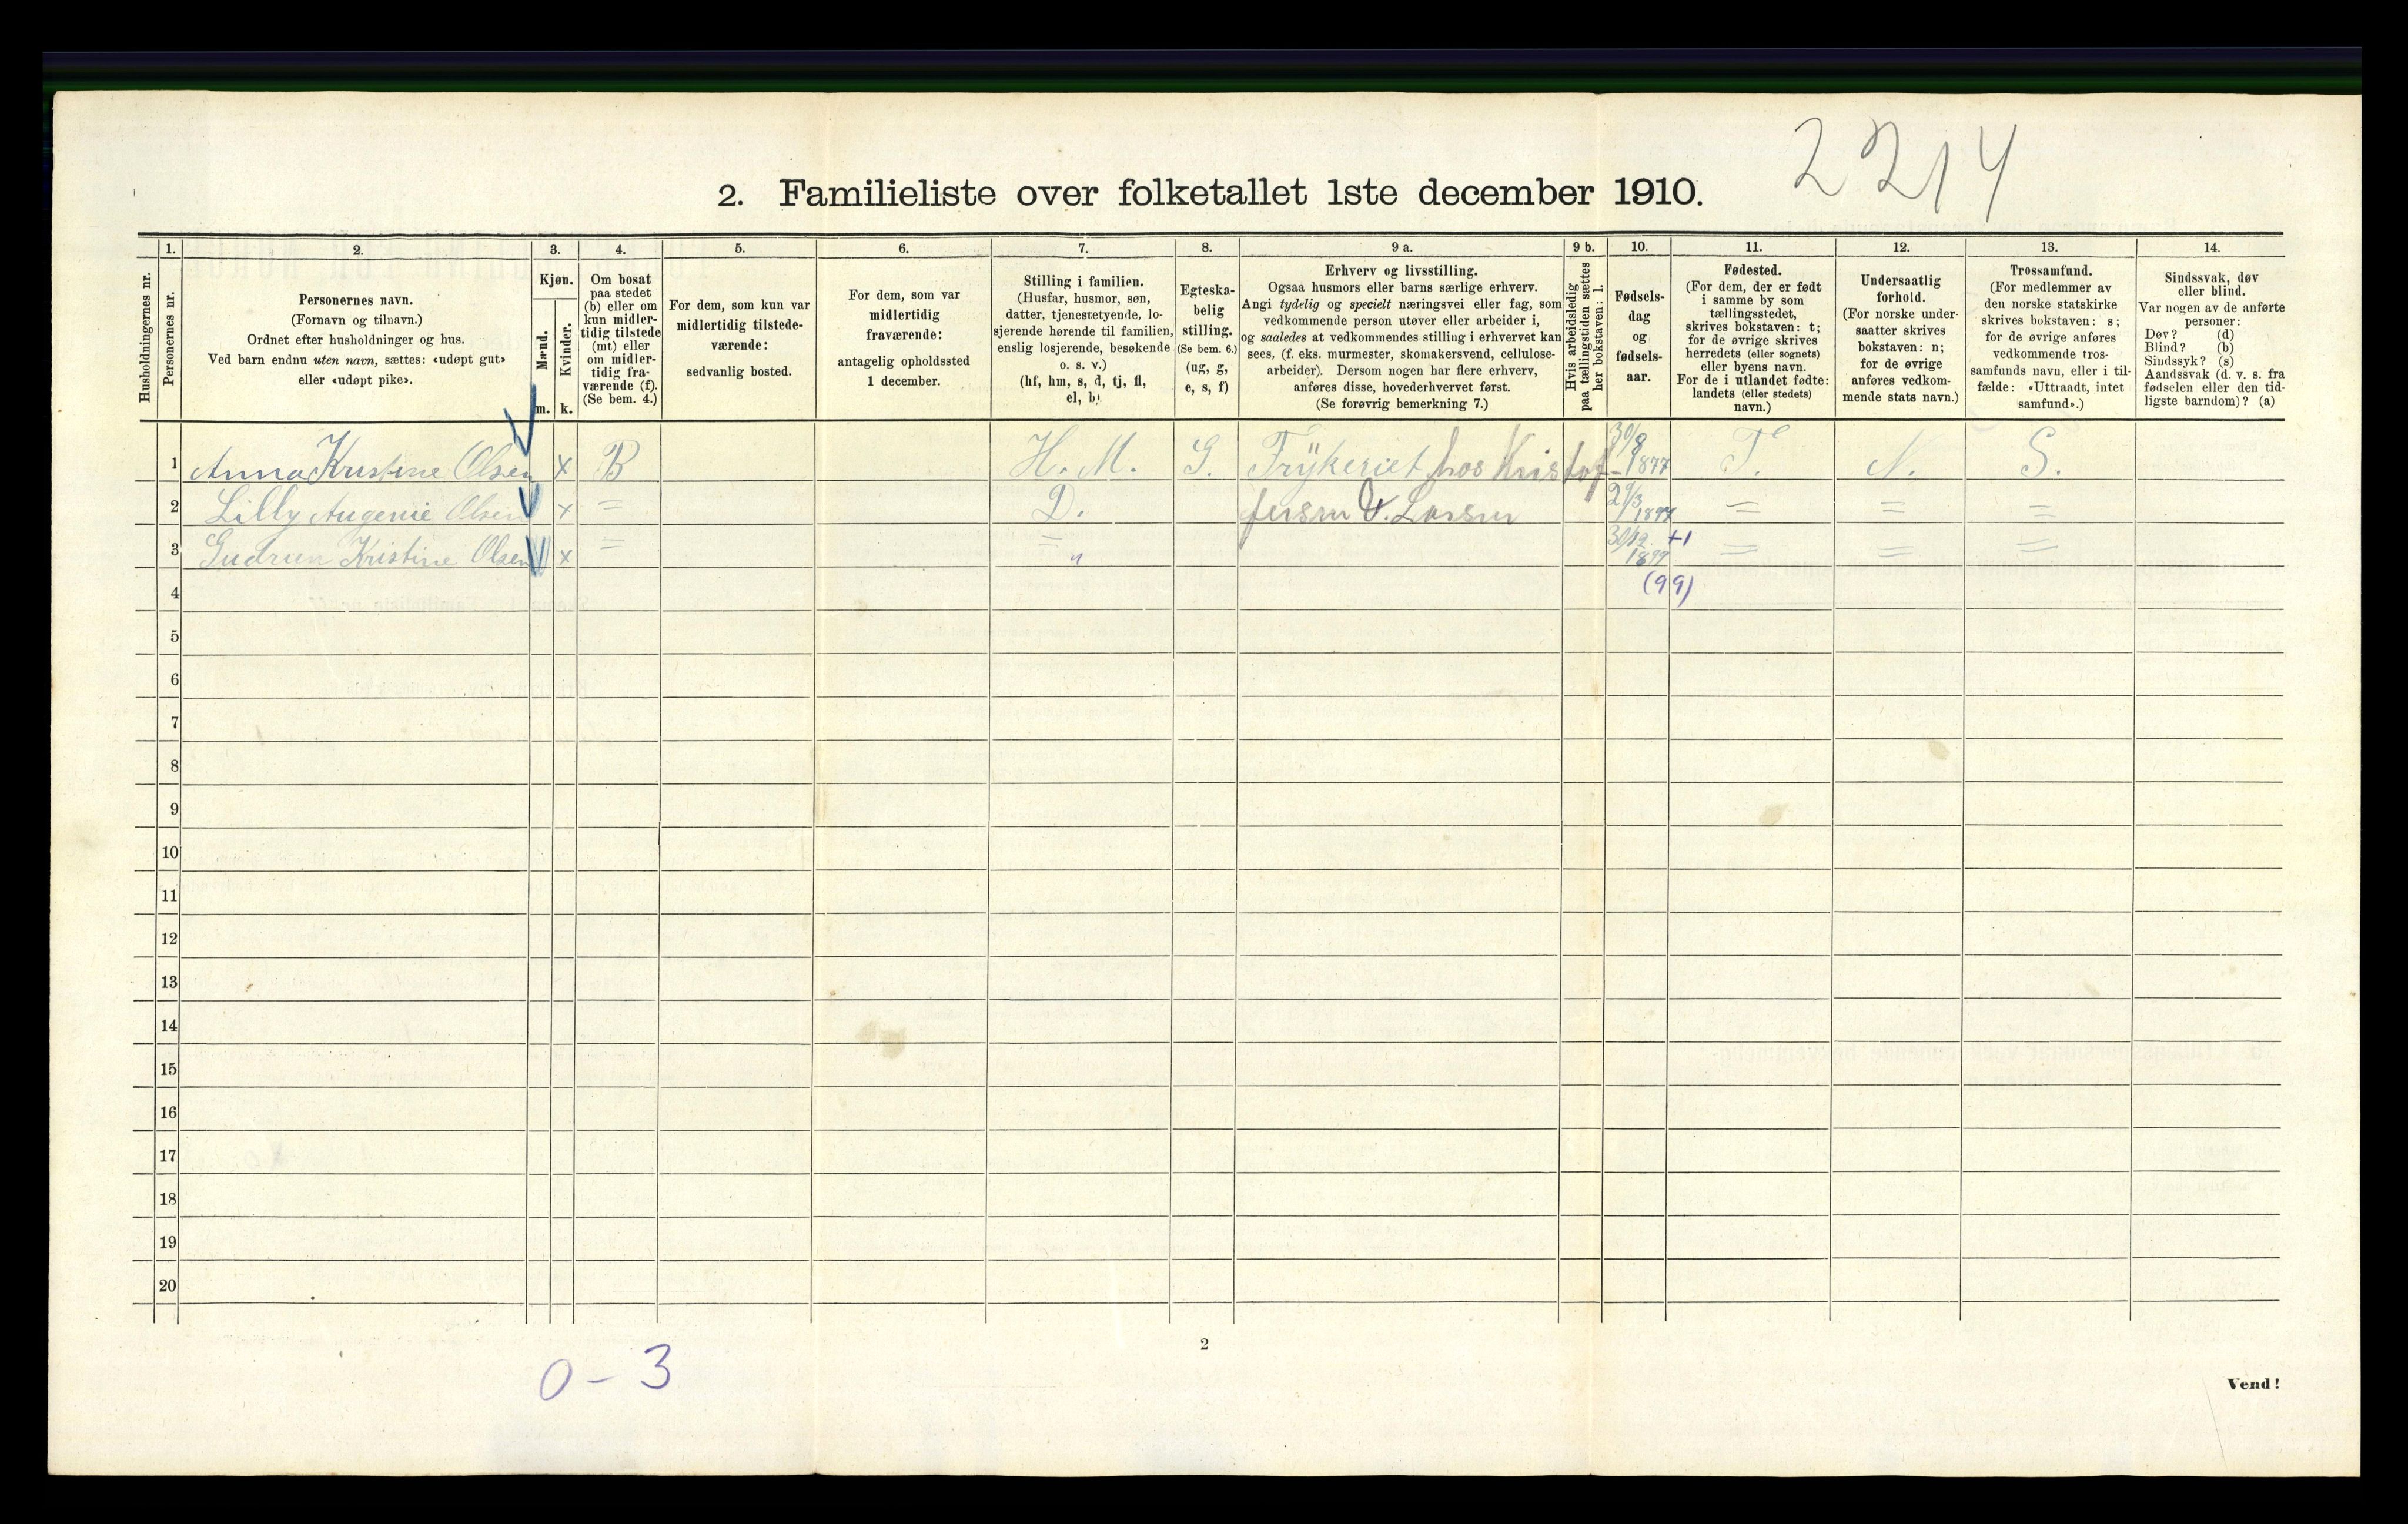 2214
2. Familieliste over folketallet 1ste december 1910.
Husholdningernes nr.
1.
Personernes nr.
2.
Personernes navn.
(Fornavn og tilnavn.)
Ordnet efter husholdninger og hus.
Ved barn endnu uten navn, sættes: «udøpt gut»
eller «udøpt pike».
3.
Kjøn.
Mænd.
m.
Kvinder.
k.
4.
Om bosat
paa stedet
(b) eller om
kun midler-
tidig tilstede
(mt) eller
om midler-
tidig fra-
værende (f).
(Se bem. 4.)
5.
For dem, som kun var
midlertidig tilstede-
værende:
sedvanlig bosted.
6.
For dem, som var
midlertidig
fraværende:
antagelig opholdssted
1 december.
7.
Stilling i familien.
(Husfar, husmor, søn,
datter, tjenestetyende, lo-
sjerende hørende til familien,
enslig losjerende, besøkende
o. s. v.)
(hf, hm, s, d, tj, fl,
el, b).
8.
Egteska-
belig
stilling.
(Se bem. 6.)
(ug, g,
e, s, f)
9 a.
Erhverv og livsstilling.
Ogsaa husmors eller barns særlige erhverv.
Angi tydelig og specielt næringsvei eller fag, som
vedkommende person utøver eller arbeider i,
og saaledes at vedkommendes stilling i erhvervet kan
sees, (f. eks. murmester, skomakersvend, cellulose-
arbeider). Dersom nogen har flere erhverv,
anføres disse, hovederhvervet først.
(Se forøvrig bemerkning 7.)
9 b.
Hvis arbeidsledig
paa tællingstiden sættes
her bokstaven: l.
10.
Fødsels-
dag
og
fødsels-
aar.
11.
Fødested.
(For dem, der er født
i samme by som
tællingsstedet,
skrives bokstaven: t;
for de øvrige skrives
herredets (eller sognets)
eller byens navn.
For de i utlandet fødte:
landets (eller stedets)
navn.)
12.
Undersaatlig
forhold.
(For norske under-
saatter skrives
bokstaven: n;
for de øvrige
anføres vedkom-
mende stats navn.)
13.
Trossamfund.
(For medlemmer av
den norske statskirke
skrives bokstaven: s;
for de øvrige anføres
vedkommende tros-
samfunds navn, eller i til-
fælde: «Uttraadt, intet
samfund».)
14.
Sindssvak, døv
eller blind.
Var nogen av de anførte
personer:
Døv? (d)
Blind? (b)
Sindssyk? (s)
Aandssvak (d. v. s. fra
fødselen eller den tid-
ligste barndom)? (a)
1 Anna Kristine Olsen x B H. M. G. Trÿkeriet hos Kristof- 30/8 1877 T. N. S.
2 Lilly Augenie Olsen x = D. fersen & Larsen /3 1897 = = =
3 Gudrun Kristine Olsen x = = " 30/12 1899 +1 = = =
4 (99)
5
6
7
8
9
10
11
12
13
14
15
16
17
18
19
20
2
0 - 3
Vend!